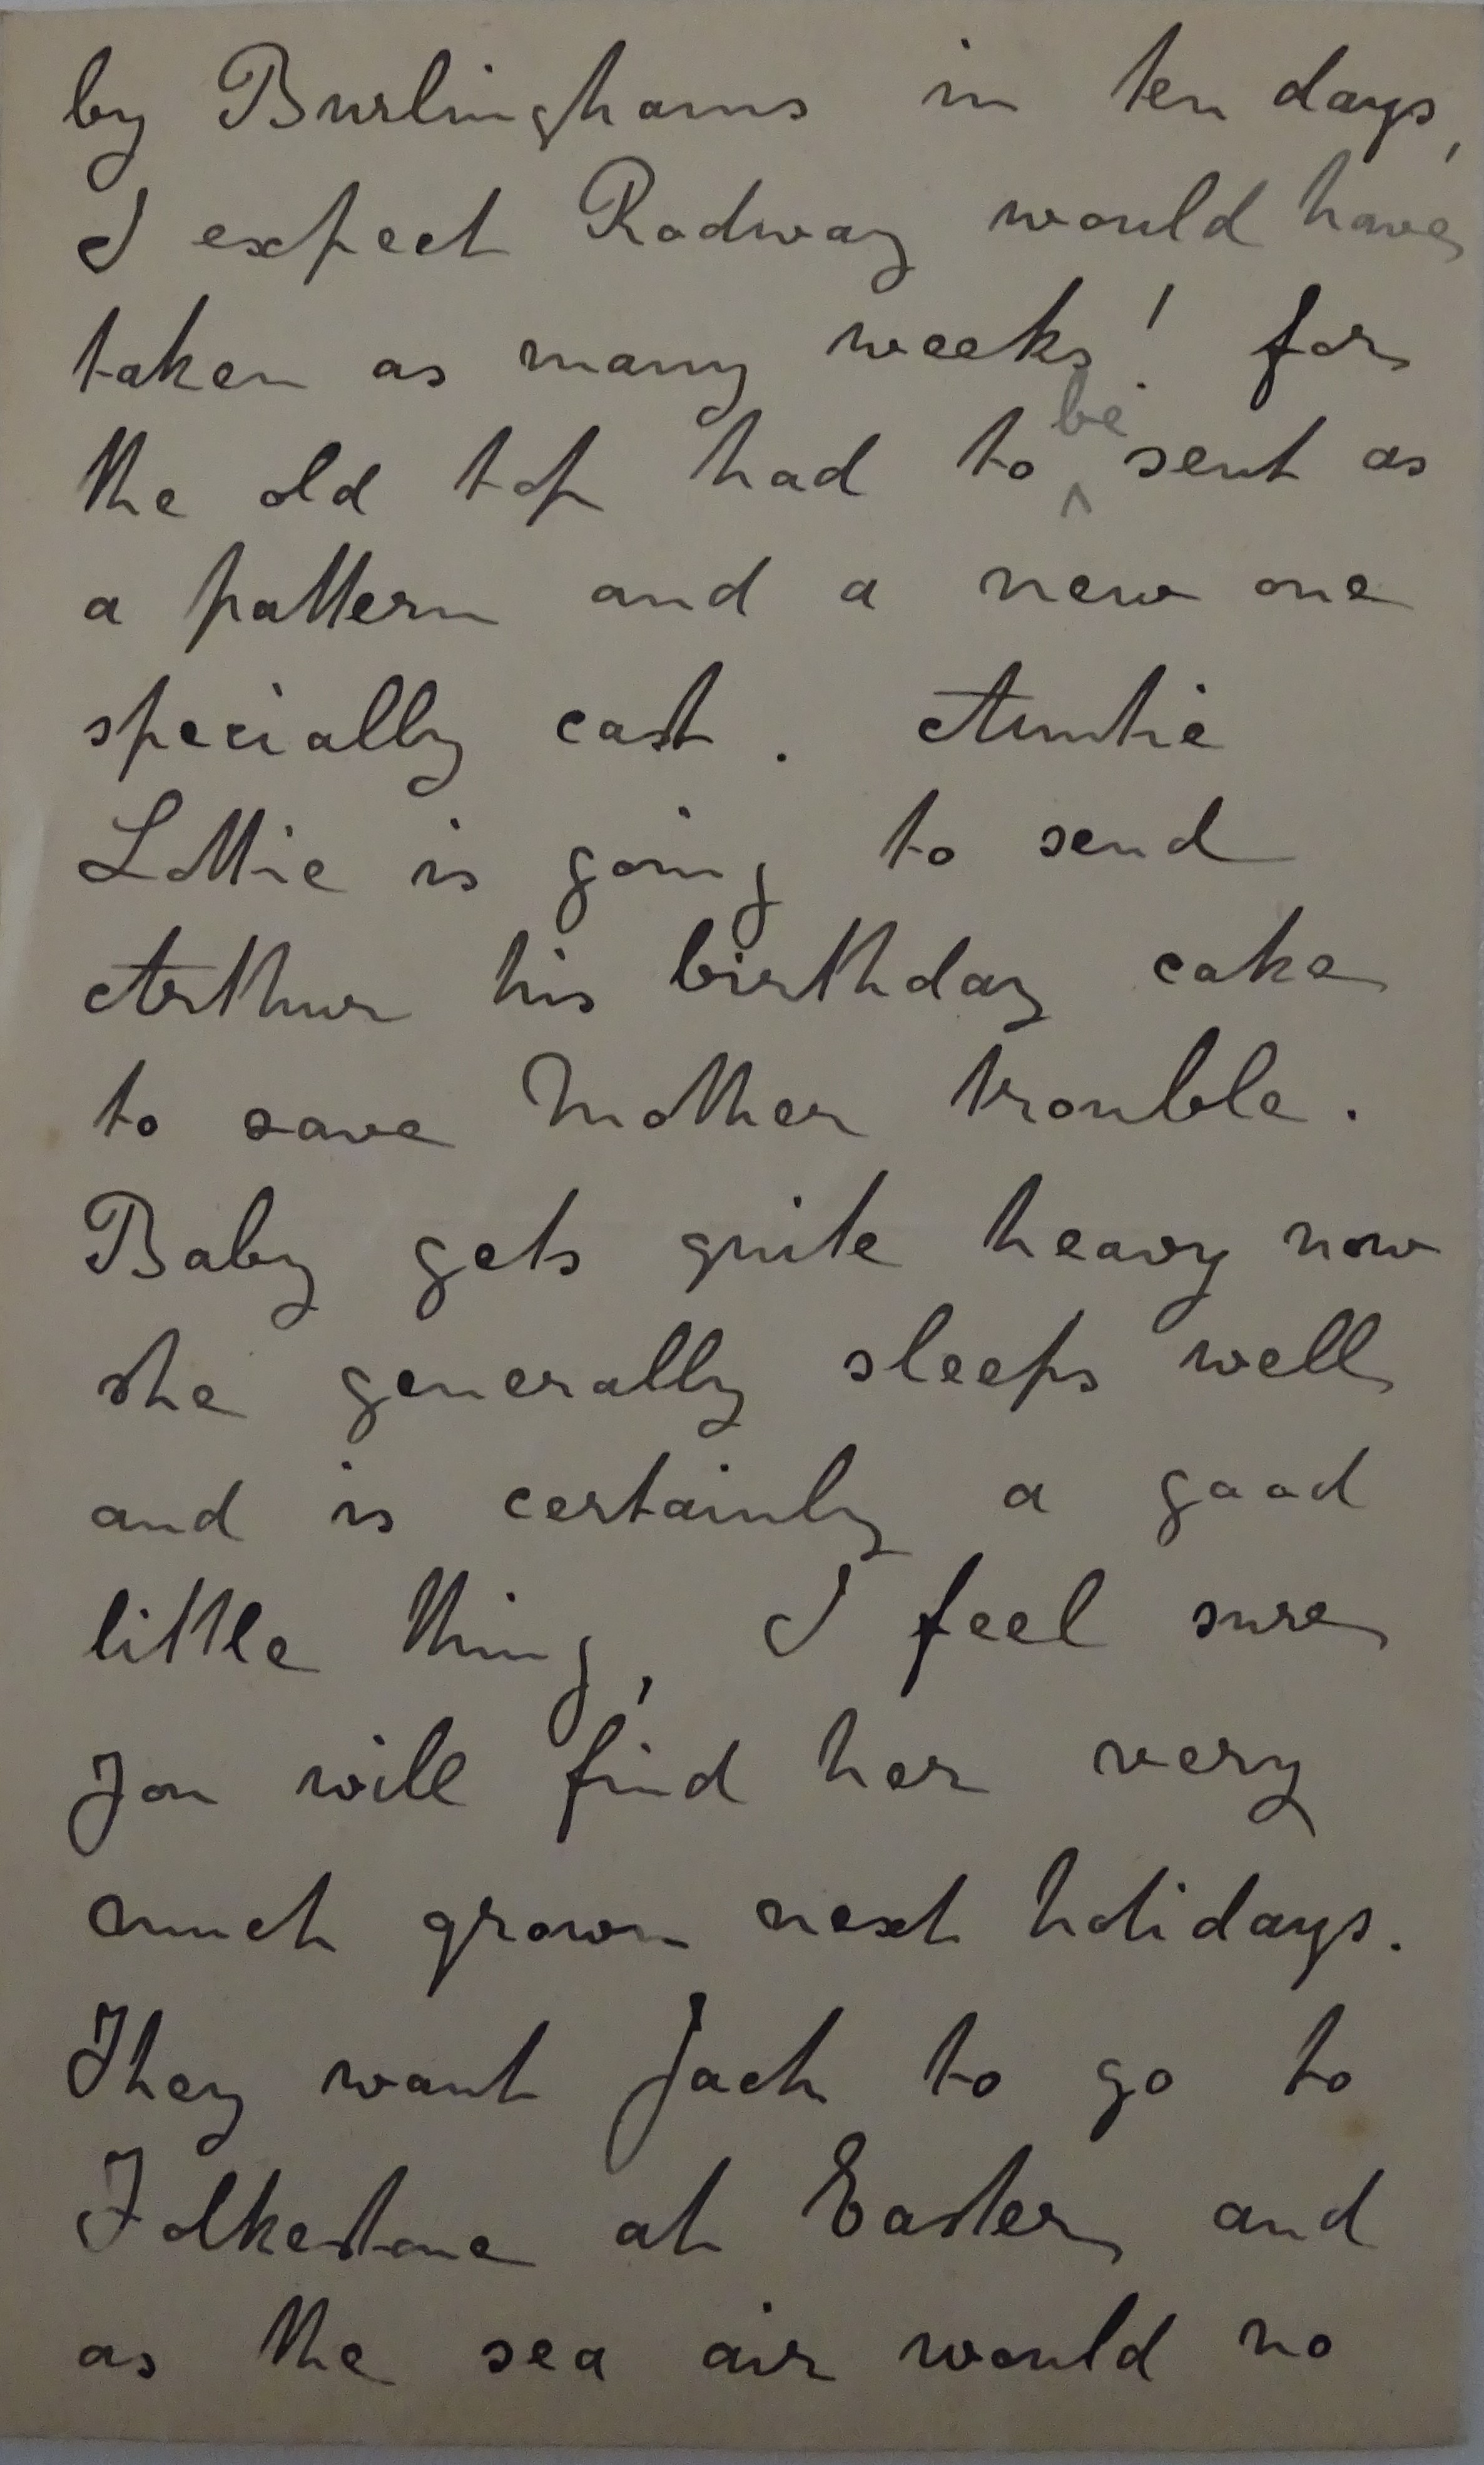 by Burlinghams in ten days,
I expect Rodway would have
taken as many weeks! for
the old top had to be sent as
a pattern and a new one
specially cast. Auntie
Lottie is going to send
Arthur his birthday cake
to save Mother trouble.
Baby gets quite heavy now
she generally sleeps well
and is certainly a good
little thing, I feel sure
you will find her very
much grown next holidays.
They want Jack to go to
Folkestone at Easter and
as the sea air would no